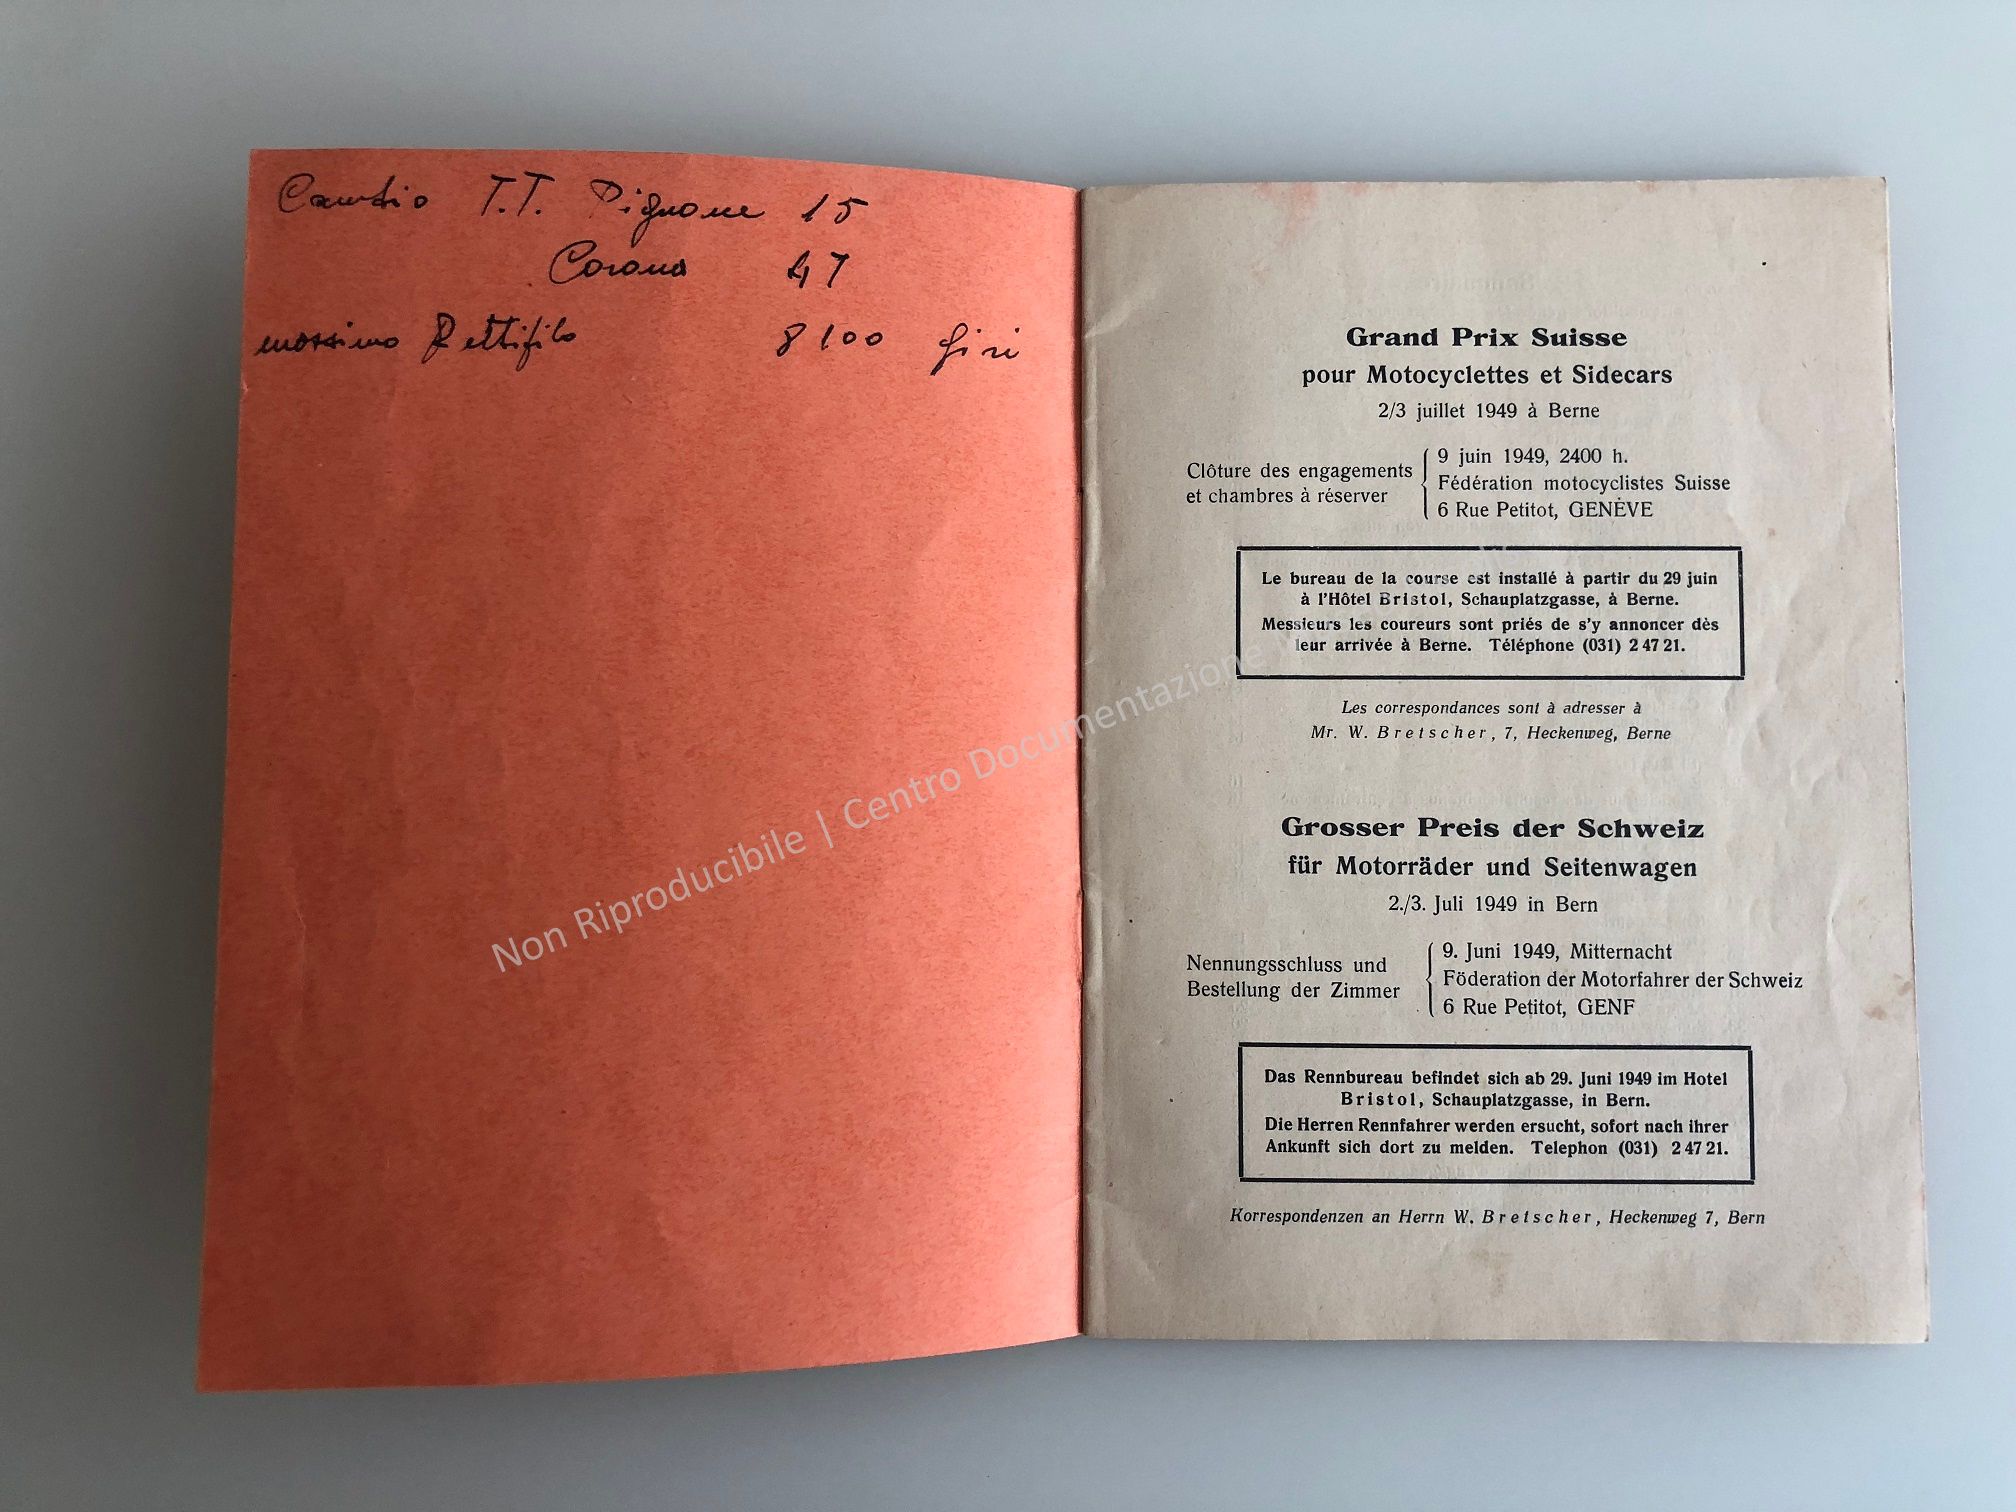 Cambio T.T. Pignone 15
Corona 47
massimo Rettifilo 8100 giri
Grand Prix Suisse
pour Motocyclettes et Sidecars
2/3 juillet 1949 à Berne
Clôture des engagements
et chambres à réserver
9 juin 1949, 2400 h.
Fédération motocyclistes Suisse
6 Rue Petitot, GENÈVE
Le bureau de la course est installé à partir du 29 juin
à l'Hôtel Bristol, Schauplatzgasse, à Berne.
Messieurs les coureurs sont priés de s'y annoncer dès
leur arrivée à Berne. Téléphone (031) 2 47 21.
Les correspondances sont à adresser à
Mr. W. Bretscher, 7, Heckenweg, Berne
Grosser Preis der Schweiz
für Motorräder und Seitenwagen
2./3. Juli 1949 in Bern
Nennungsschluss und
Bestellung der Zimmer
9. Juni 1949, Mitternacht
Föderation der Motorfahrer der Schweiz
6 Rue Petitot, GENF
Das Rennbureau befindet sich ab 29. Juni 1949 im Hotel
Bristol, Schauplatzgasse, in Bern.
Die Herren Rennfahrer werden ersucht, sofort nach ihrer
Ankunft sich dort zu melden. Telephon (031) 2 47 21.
Korrespondenzen an Herrn W. Bretscher, Heckenweg 7, Bern
Non Riproducibile | Centro Documentazione